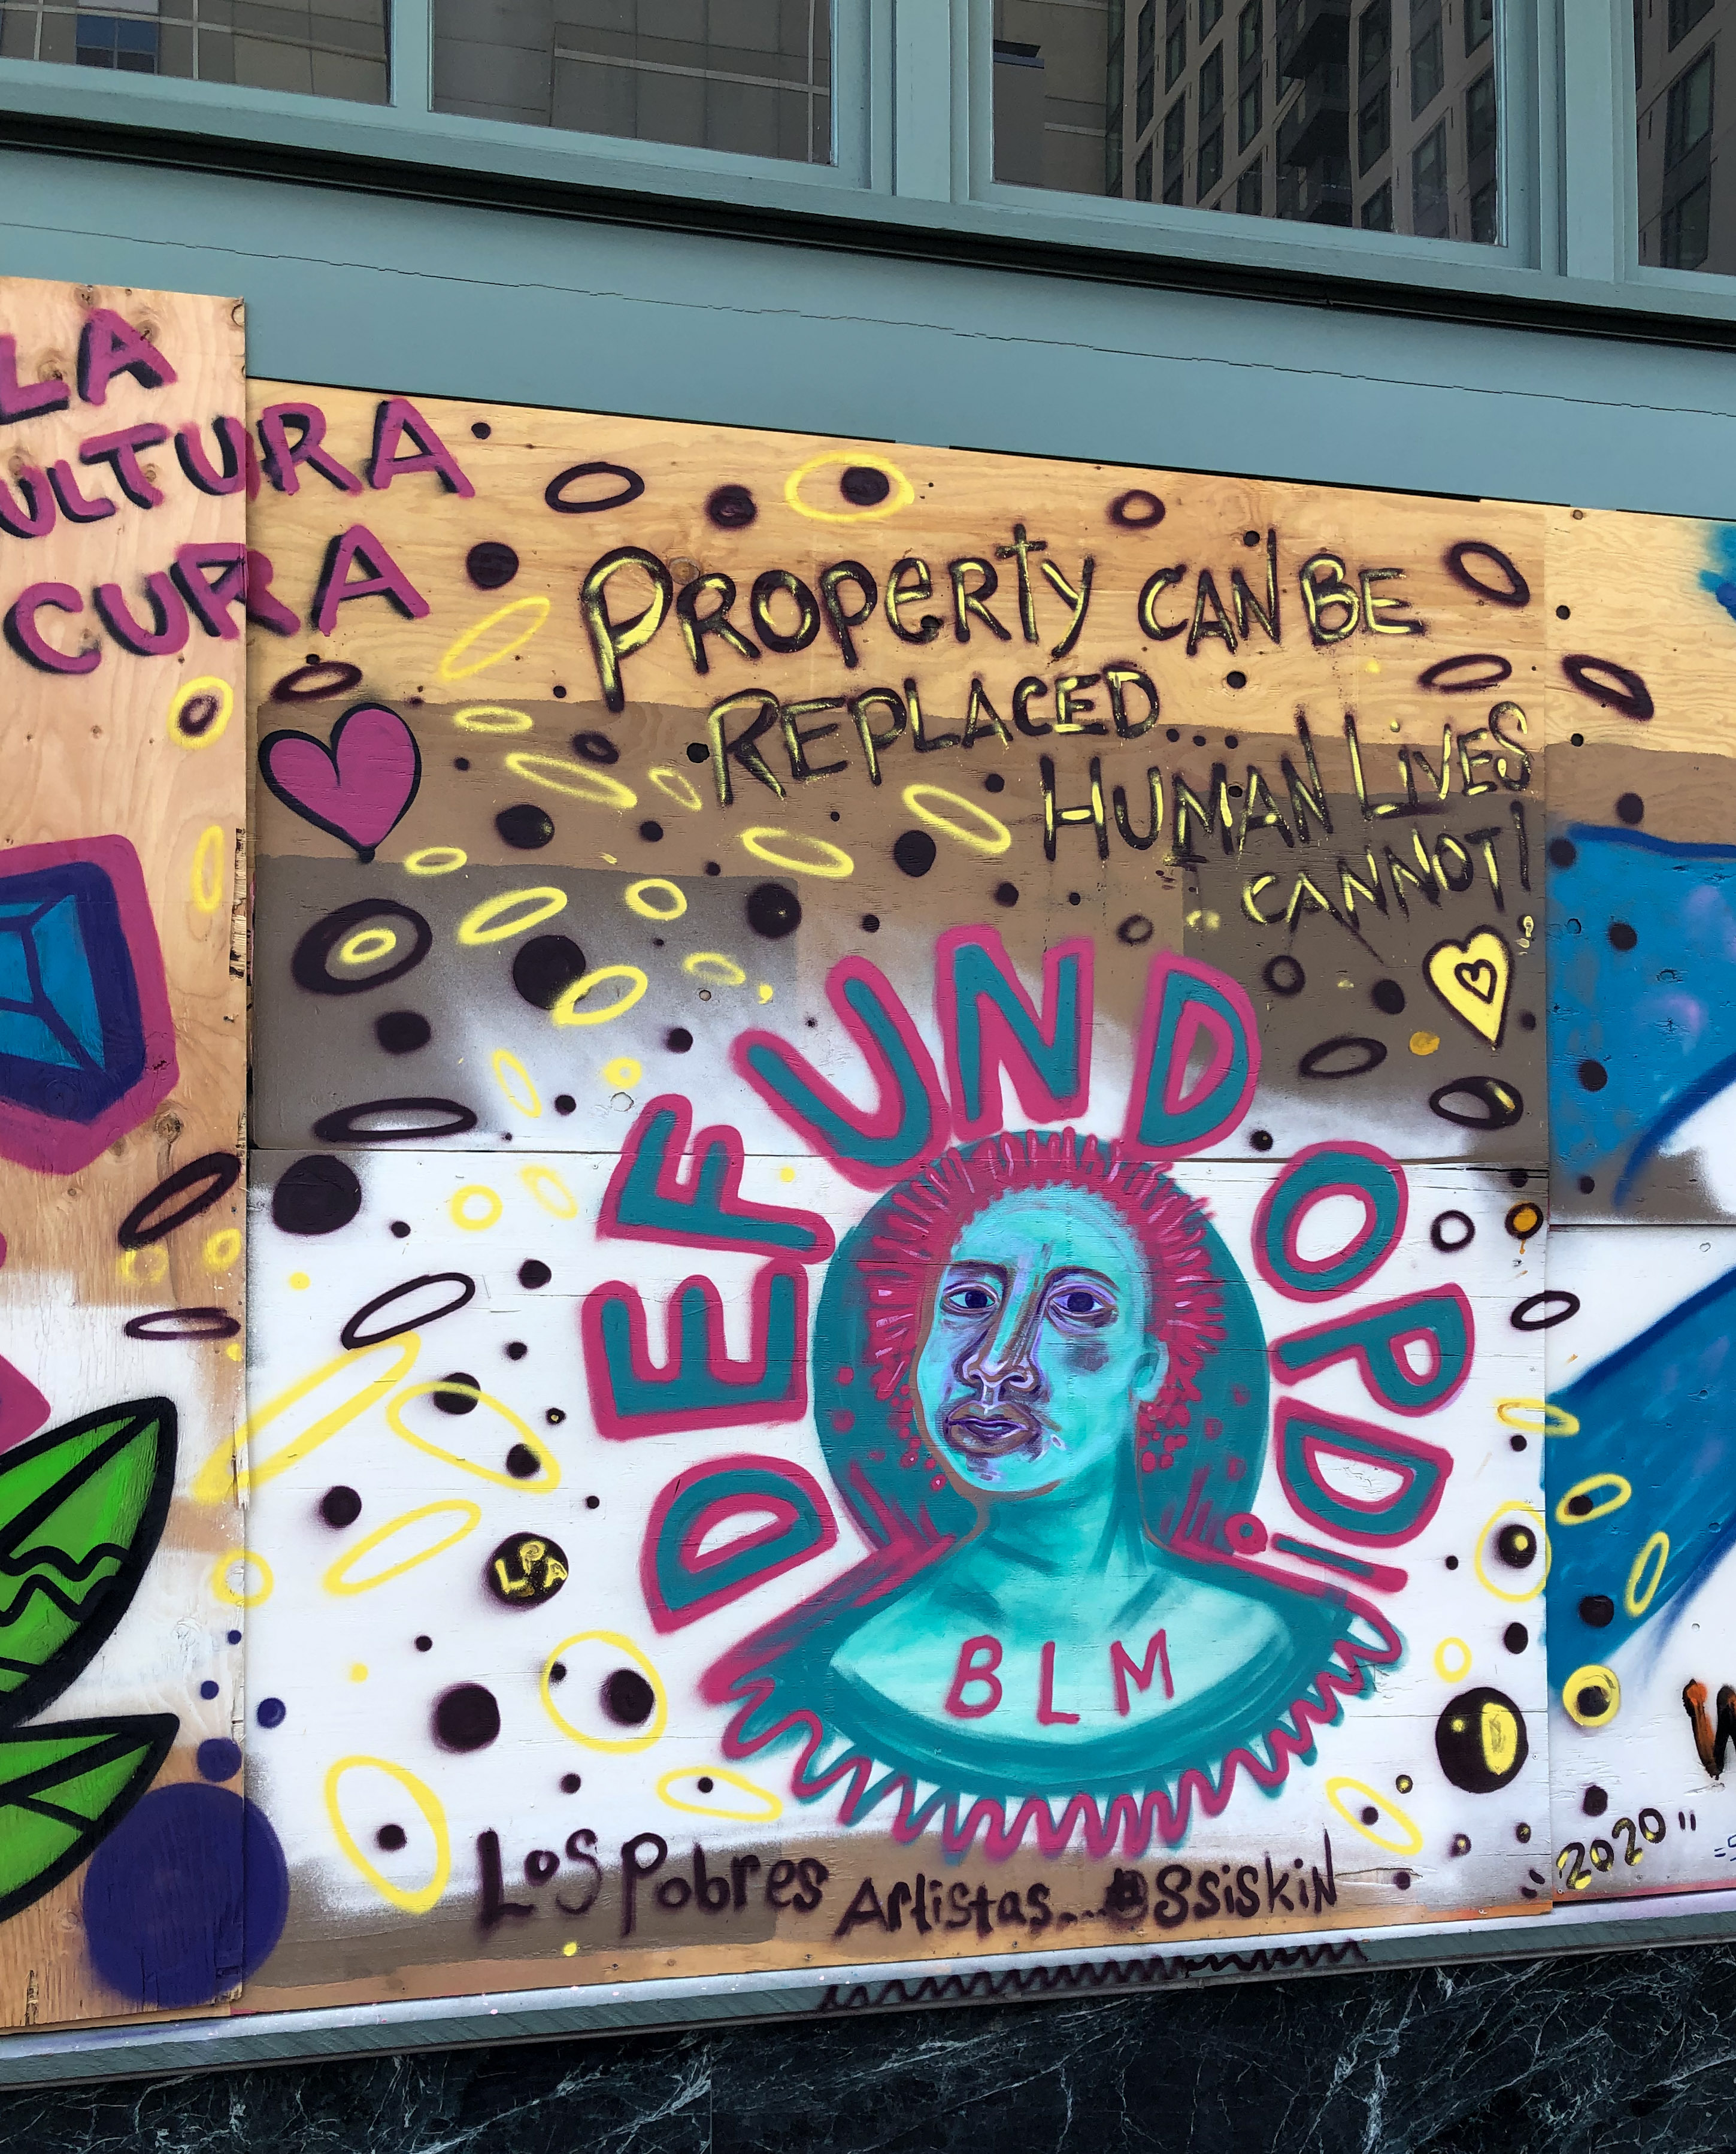 LA
ULTURA
CURA
PROPERTY CAN BE
REPLACED...
HUMAN LIVES
CANNOT!
DEFUND OPD!
LPA
BLM
Los Pobres Artistas...@8siskiN
2020"